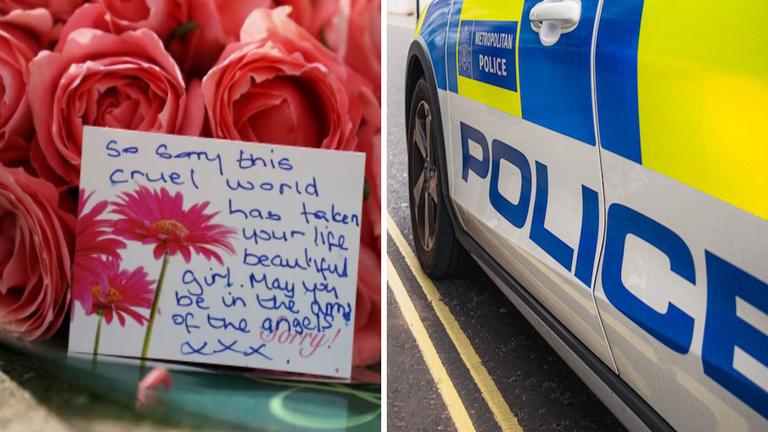 So sorry this
cruel world
has taken
your life
beautiful
girl. May you
be in the arms
of the angels
xxx.
Sorry!
METROPOLITAN
POLICE
POLICE